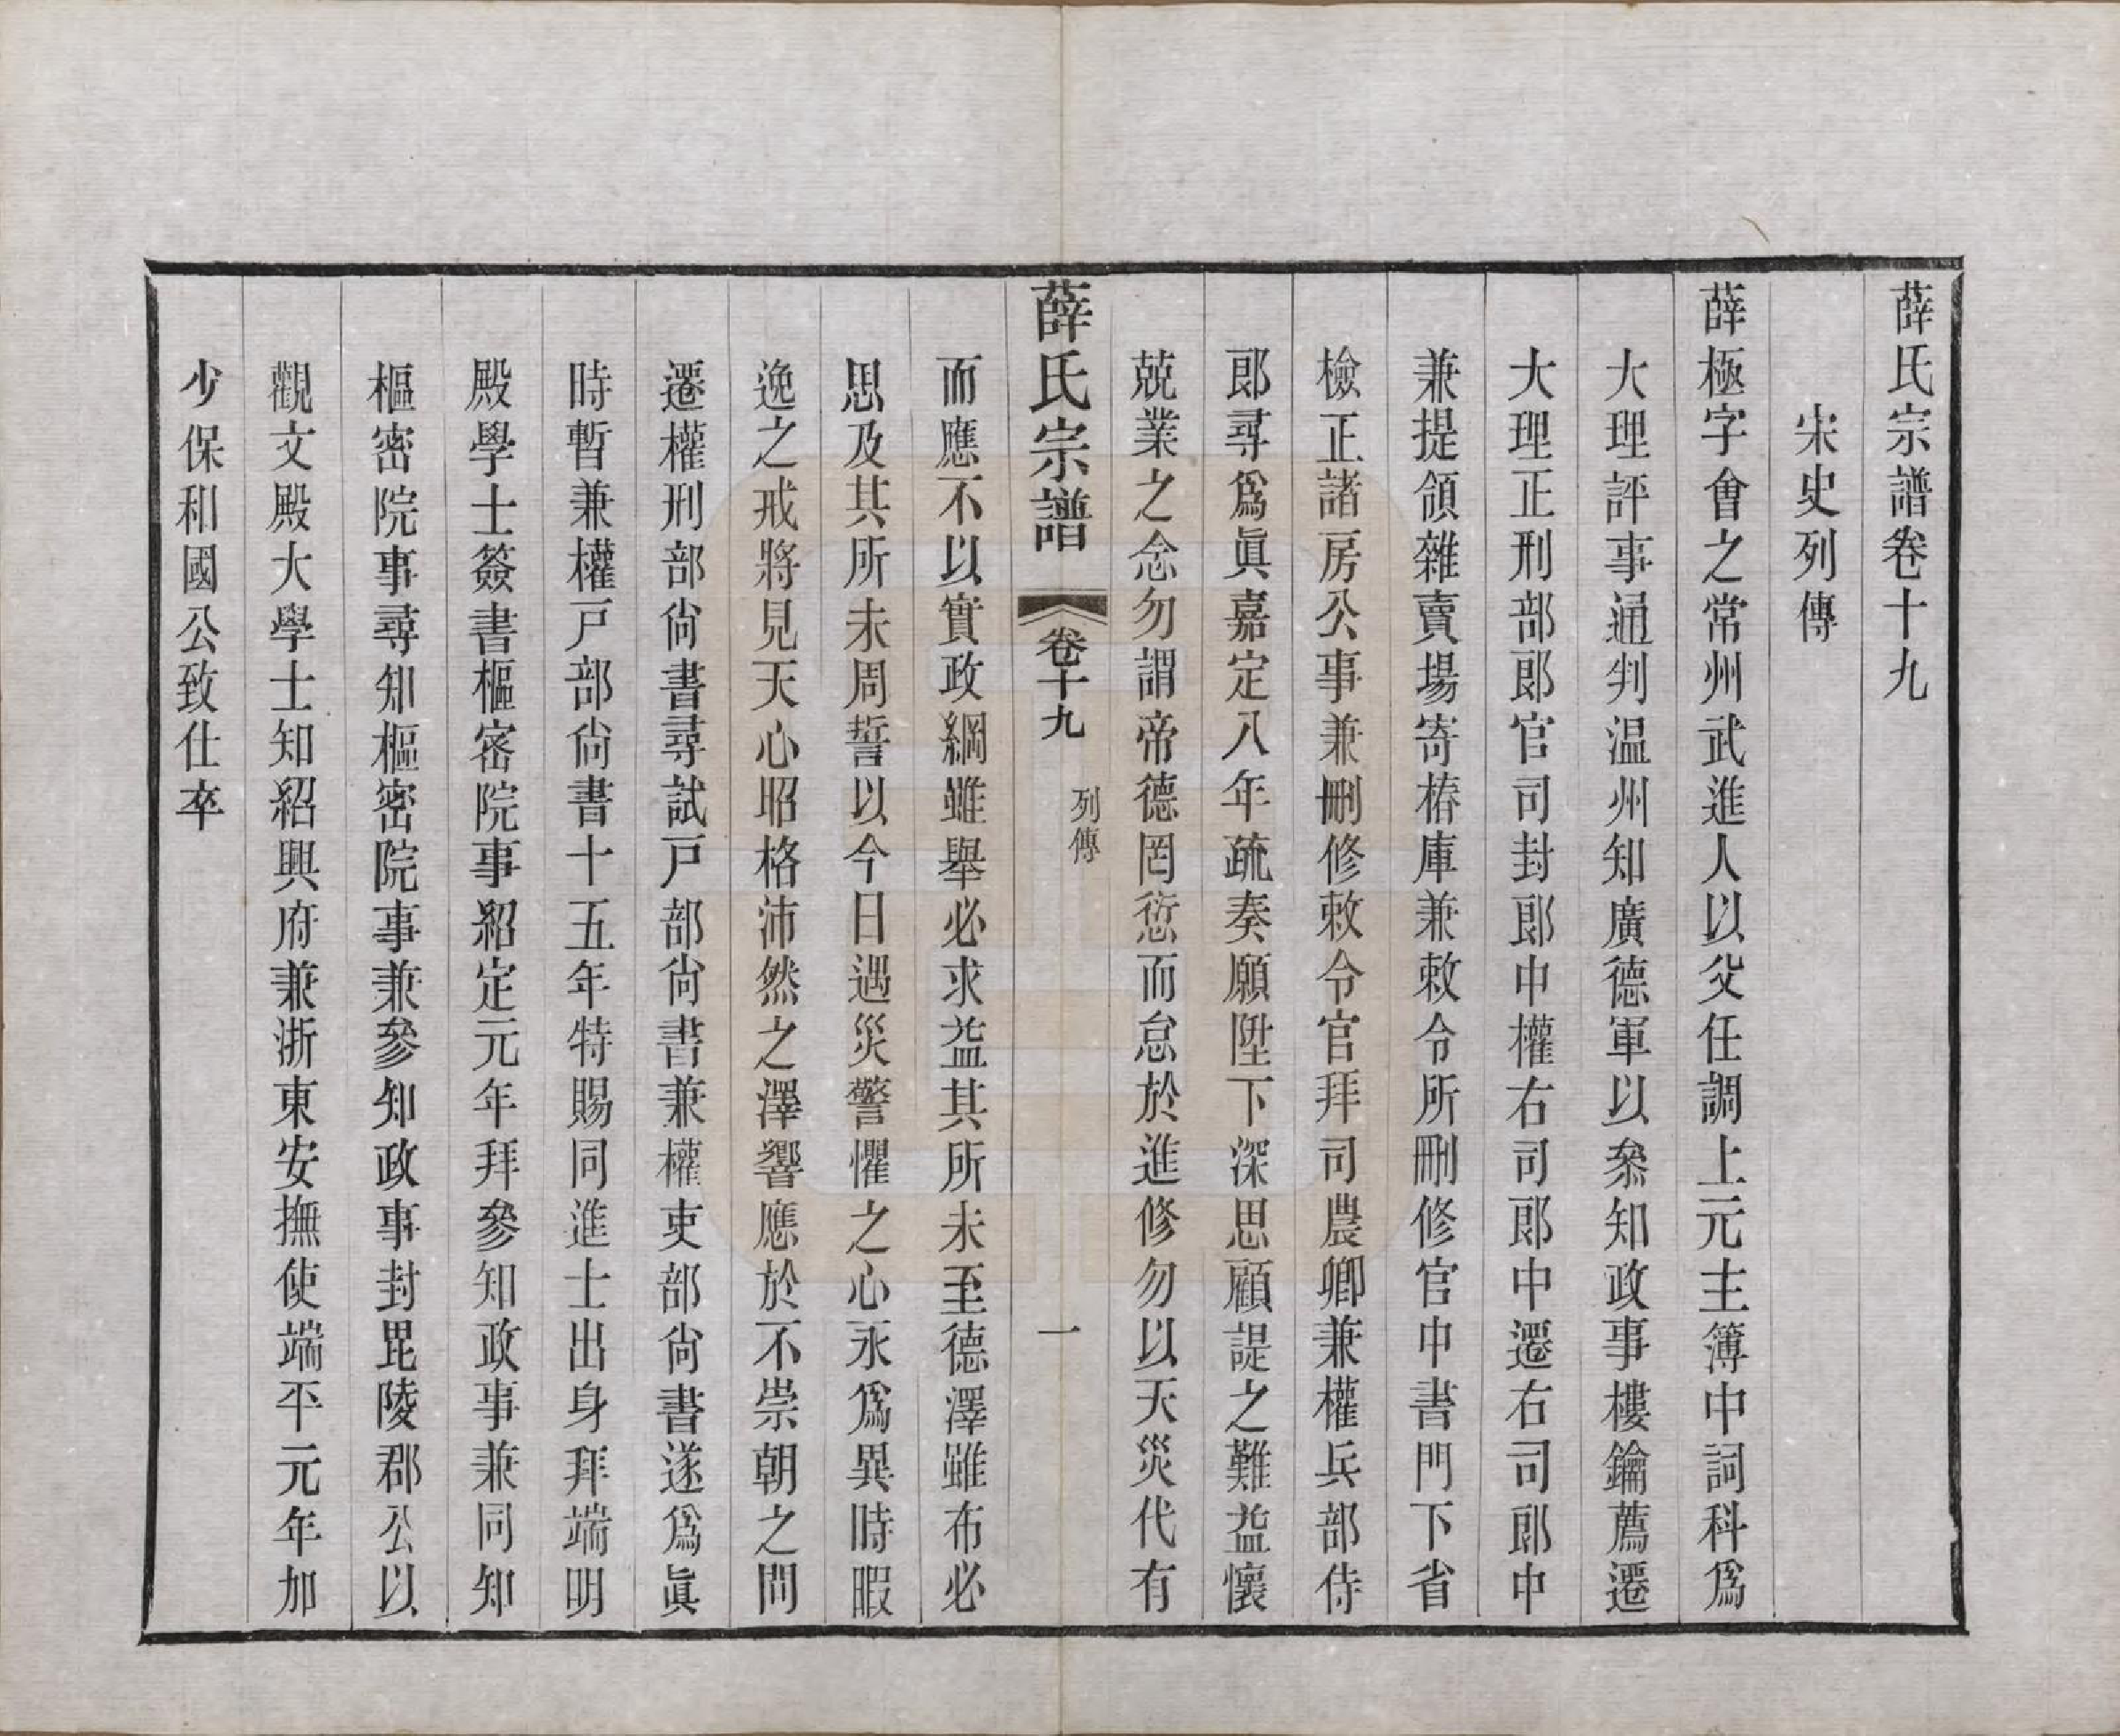 薛氏宗譜卷十九
宋史列傳
薛極字會之常州武進人以父任調上元主簿中詞科爲
大理評事通判温州知廣德軍以叅知政事樓鑰薦遷
大理正刑部郎官司封郎中權右司郎中遷右司郎中
兼提領雜賣場寄樁庫兼敕令所刪修官中書門下省
檢正諸房公事兼刪修敕令官拜司農卿兼權兵部侍
郎尋爲眞嘉定八年疏奏願陞下深思顧諟之難益懷
兢業之念勿謂帝德罔愆而怠於進修勿以天災代有
薛氏宗譜 卷十九 列傳 一
而應不以實政綱雖舉必求益其所未至德澤雖布必
思及其所未周誓以今日遇災警懼之心永爲異時暇
逸之戒將見天心昭格沛然之澤響應於不崇朝之間
遷權刑部尙書尋試戸部尙書兼權吏部尙書遂爲眞
時暫兼權戸部尙書十五年特賜同進士出身拜端明
殿學士簽書樞密院事紹定元年拜參知政事兼同知
樞密院事尋知樞密院事兼參知政事封毘陵郡公以
觀文殿大學士知紹興府兼浙東安撫使端平元年加
少保和國公致仕卒